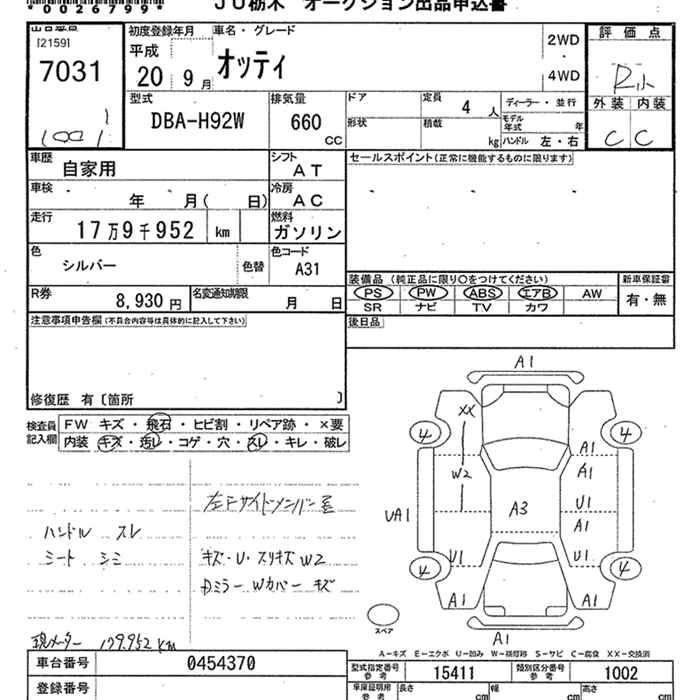 *0026799*
JU栃木 オークション出品申込書
出品番号
[2159]
7031
初度登録年月
平成
20 9月
車名・グレード
オッティ
2WD
4WD
評価点
R
外装 内装
C C
型式
DBA-H92W
排気量
660 CC
ドア
形状
定員 4 人
積載 kg
ディーラー・並行
モデル年式 年
ハンドル 左・右
車歴 自家用
シフト AT
セールスポイント(正常に機能するものに限ります)
車検 年 月( 日)
冷房 AC
走行 17万9千952 km
燃料 ガソリン
色 シルバー 色替
色コード A31
装備品 (純正品に限り○をつけてください)
新車保証書
PS PW ABS エアB AW
有・無
SR ナビ TV カワ
R券 8,930円
名変通知期限 月 日
後日品
注意事項申告欄(不具合内容等は具体的に記入して下さい)
修復歴 有〔箇所 〕
検査員記入欄
FW キズ・飛石・ヒビ割・リペア跡・×要
内装 キズ・汚レ・コゲ・穴・スレ・キレ・破レ
ハンドル スレ
シート シミ
キズ・U・スリキズ W2
Dミラー Wカバー キズ
現メーター 179.952 km
A1
XX
4
4
A1
A1
W2
UA1
A3
U1
A1
U1
U1
4
4
A1
A1
A1
スペア
A-キズ E-エクボ U-凹み W-補修跡 S-サビ C-腐食 XX-交換済
車台番号 0454370
型式指定番号 参考 15411
類別区分番号 参考 1002
登録番号
車庫証明用 参考
長さ cm
幅 cm
高さ cm